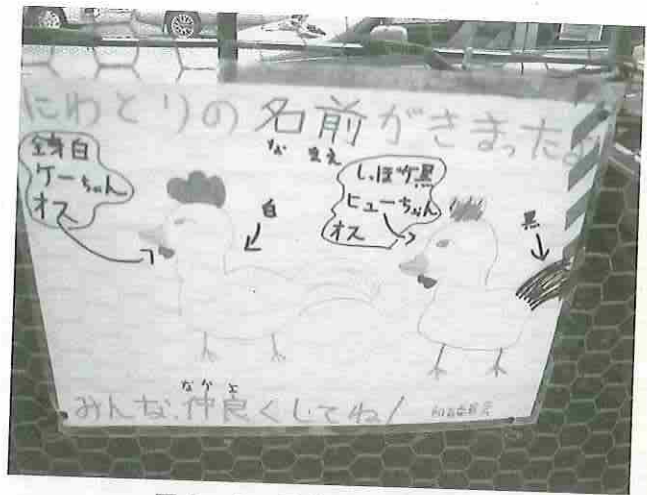 にわとりの名前がきまったよ
なまえ
全身白
ケーちゃん
オス
白
しっぽが黒
ヒューちゃん
オス
黒
なかよ
みんな仲良くしてね!